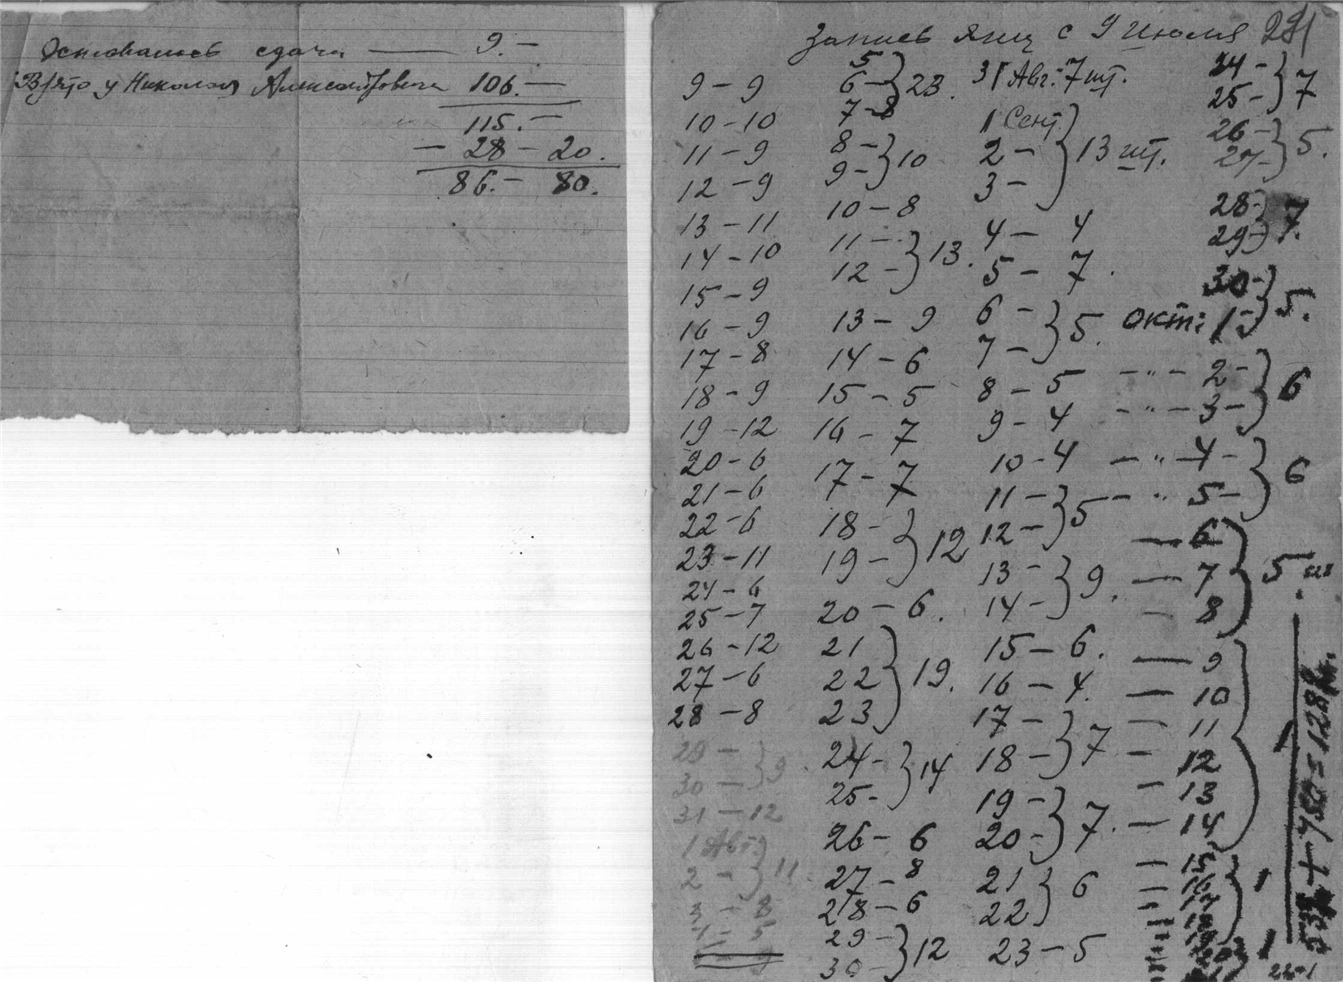 Основалось сдача — 9.—
Взято у Николая Александровича 106.—
115.—
— 28 — 20.
86.— 80.
Запись яиц с 9 Июля
9 – 9
10 – 10
11 – 9
12 – 9
13 – 11
14 – 10
15 – 9
16 – 9
17 – 8
18 – 9
19 – 12
20 – 6
21 – 6
22 – 6
23 – 11
24 – 6
25 – 7
26 – 12
27 – 6
28 – 8
29 –
30 – } 9
31 – 12
1 Авг.
2 – } 11.
3 – 8
4 – 5
5
6 – } 23.
7 – 8
8 –
9 – } 10
10 – 8
11 –
12 – } 13.
13 – 9
14 – 6
15 – 5
16 – 7
17 – 7
18 –
19 – } 12
20 – 6.
21
22 } 19.
23
24 –
25 – } 14
26 – 6
27 – 8
28 – 6
29 –
30 – } 12
31 Авг. – 7 шт.
1 Сент
2 – } 13 шт.
3 –
4 – 4
5 – 7.
6 –
7 – } 5.
8 – 5
9 – 4
10 – 4
11 –
12 – } 5
13 –
14 – } 9.
15 – 6.
16 – 4.
17 –
18 – } 7
19 –
20 – } 7.
21
22 } 6
23 – 5
24 –
25 – } 7
26 –
27 – } 5.
28 –
29 – } 7.
30 –
окт: 1 – } 5.
– " – 2 –
– " – 3 – } 6
– " – 4 –
– " 5 – } 6
— 6
— 7 } 5
– 8
— 9
— 10
— 11
– 12
– 13
— 14
– 15
538 + 750 = 1288